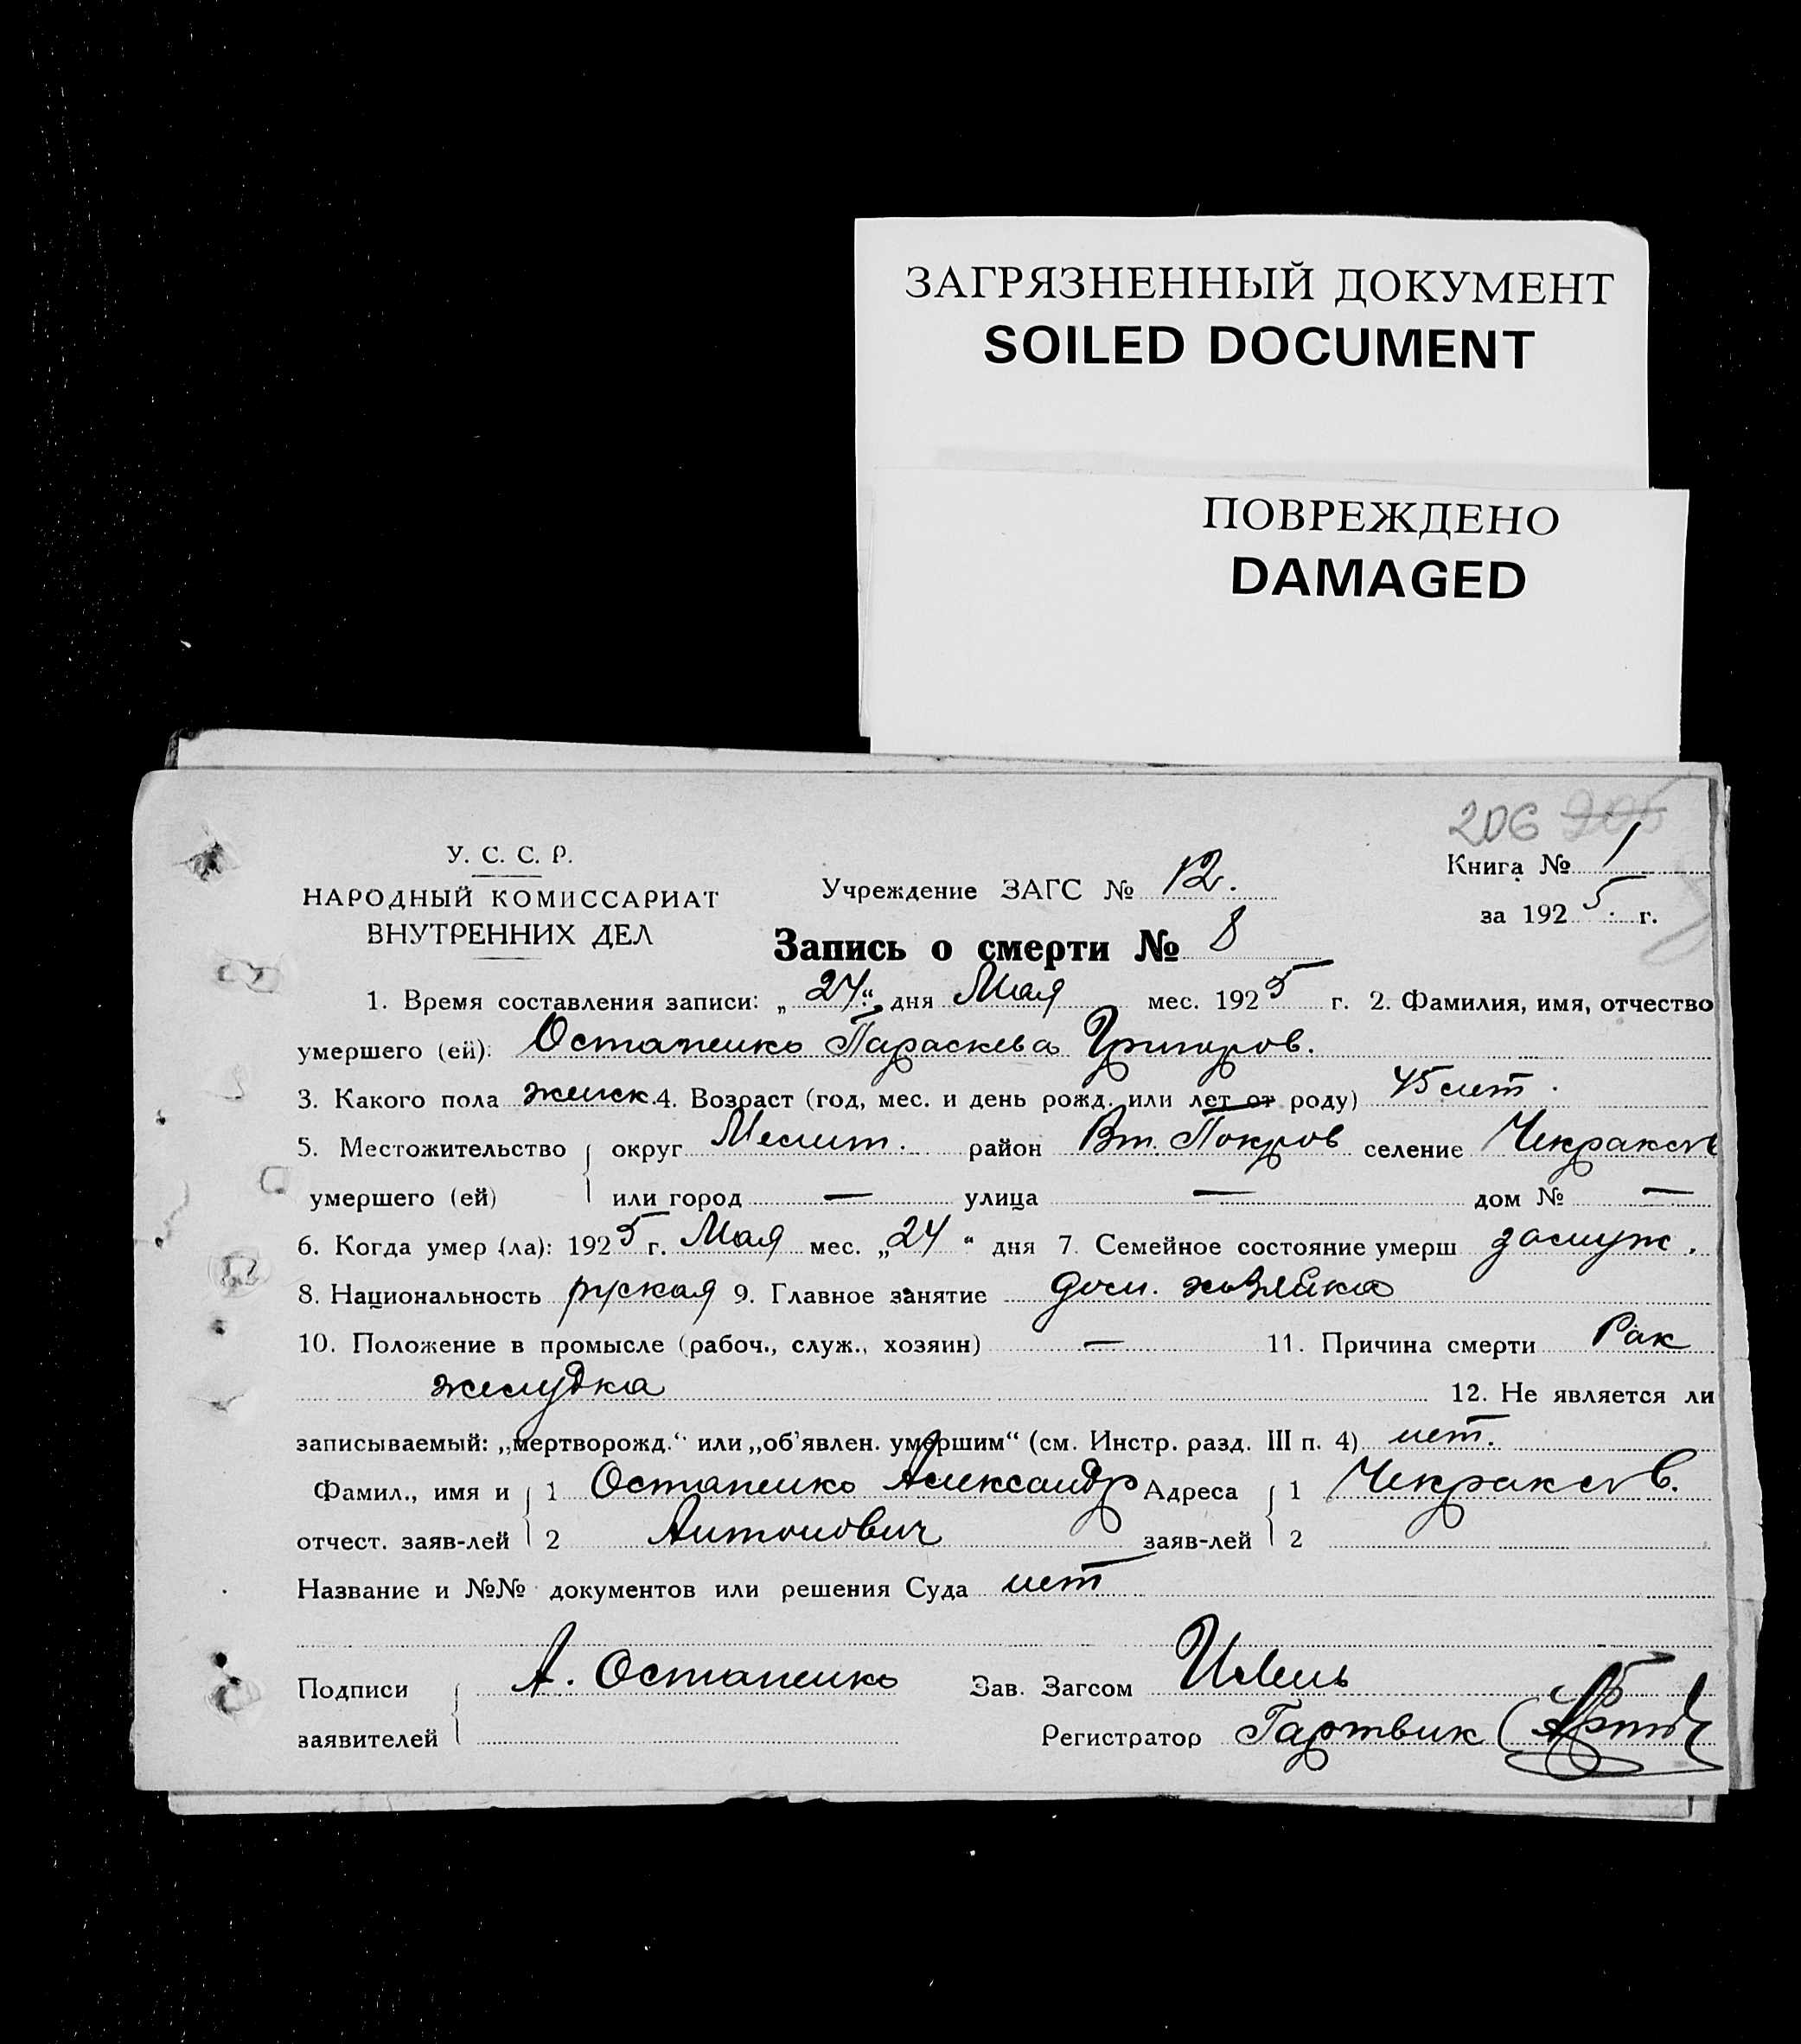 ЗАГРЯЗНЕННЫЙ ДОКУМЕНТ
SOILED DOCUMENT
ПОВРЕЖДЕНО
DAMAGED
206 205
У. С. С. Р.
НАРОДНЫЙ КОМИССАРИАТ
ВНУТРЕННИХ ДЕЛ
Учреждение ЗАГС № 12.
Книга № 1
за 1925 г.
Запись о смерти № 8
1. Время составления записи: „24“ дня Мая мес. 1925 г. 2. Фамилия, имя, отчество
умершего (ей): Остапенко Параскева Григоров.
3. Какого пола женск. 4. Возраст (год, мес. и день рожд. или лет от роду) 45 лет.
5. Местожительство округ Мелит. район Вт. Покров селение Чекракслв
умершего (ей) или город — улица — дом № —
6. Когда умер (ла): 1925 г. Мая мес. „24“ дня 7. Семейное состояние умерш замуж.
8. Национальность руская 9. Главное занятие дом. хозяйка
10. Положение в промысле (рабоч., служ., хозяин) — 11. Причина смерти Рак
желудка 12. Не является ли
записываемый: „мертворожд.“ или „об'явлен. умершим“ (см. Инстр. разд. III п. 4) нет.
Фамил., имя и 1 Остапенко Александр Адреса 1
отчест. заяв-лей 2 Антонович заяв-лей 2
Название и №№ документов или решения Суда нет
Подписи А. Остапенко Зав. Загсом
заявителей Регистратор Гартвик